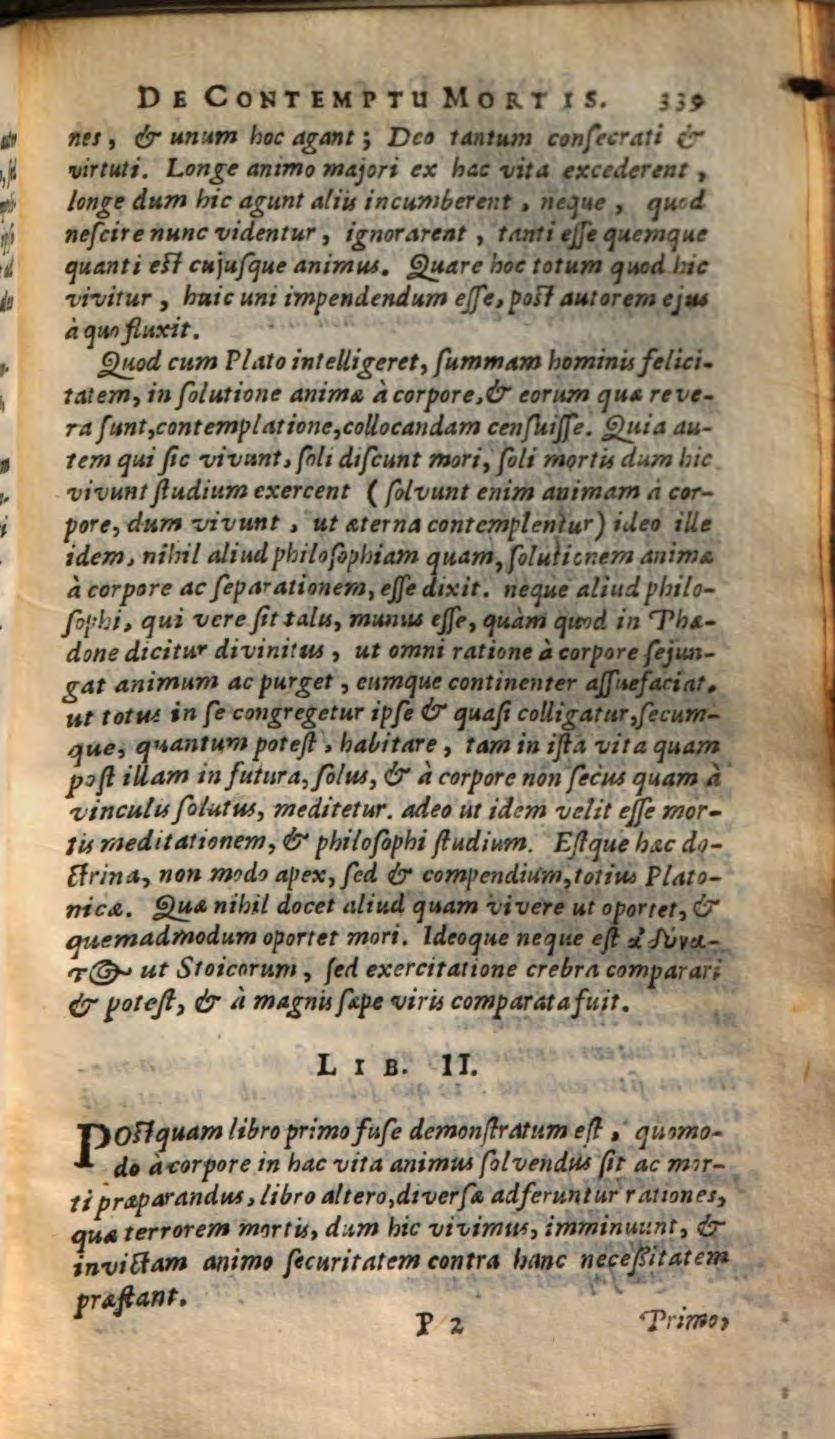 DE CONTEMPTU MORTIS. 339
nes, & unum hoc agant; Deo tantum conſecrati &
virtuti. Longe animo majori ex hac vita excederent,
longe dum hic agunt aliis incumberent, neque, quod
neſcire nunc videntur, ignorarent, tanti eſſe quemque
quanti eſt cujuſque animus. Quare hoc totum quod hic
vivitur, huic uni impendendum eſſe, poſt autorem ejus
à quo fluxit.
Quod cum Plato intelligeret, ſummam hominis felici-
tatem, in ſolutione animæ à corpore, & eorum quæ reve-
ra ſunt, contemplatione, collocandam cenſuiſſe. Quia au-
tem qui ſic vivunt, ſoli diſcunt mori, ſoli mortis dum hic
vivunt ſtudium exercent (ſolvunt enim animam à cor-
pore, dum vivunt, ut æterna contemplentur) ideo ille
idem, nihil aliud philoſophiam quam, ſolutionem animæ
à corpore ac ſeparationem, eſſe dixit. neque aliud philo-
ſophi, qui vere ſit talis, munus eſſe, quàm quod in Phæ-
done dicitur divinitus, ut omni ratione à corpore ſejun-
gat animum ac purget, eumque continenter aſſuefaciat,
ut totus in ſe congregetur ipſe & quaſi colligatur, ſecum-
que, quantum poteſt, habitare, tam in iſta vita quam
poſt illam in futura, ſolus, & à corpore non ſecus quam à
vinculis ſolutus, meditetur. adeo ut idem velit eſſe mor-
tis meditationem, & philoſophi ſtudium. Eſtque hæc do-
ctrina, non modo apex, ſed & compendium, totius Plato-
nicæ. Quæ nihil docet aliud quam vivere ut oportet, &
quemadmodum oportet mori. Ideoque neque eſt ἀδύνα-
τος ut Stoicorum, ſed exercitatione crebra comparari
& poteſt, & à magnis ſæpe viris comparata fuit.
LIB. II.
POſtquam libro primo fuſe demonſtratum eſt, quomo-
do à corpore in hac vita animus ſolvendus ſit ac mor-
ti præparandus, libro altero, diverſæ adferuntur rationes,
quæ terrorem mortis, dum hic vivimus, imminuunt, &
invictam animo ſecuritatem contra hanc neceſſitatem
præſtant.
P 2 Primo,